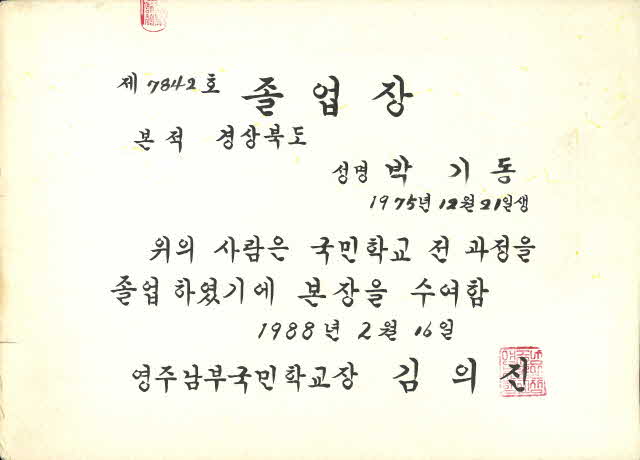 제 7842호 졸업장
본적 경상북도
성명 박기동
1975년 12월 21일생
위의 사람은 국민학교 전 과정을
졸업하였기에 본장을 수여함
1988년 2월 16일
영주남부국민학교장 김의진